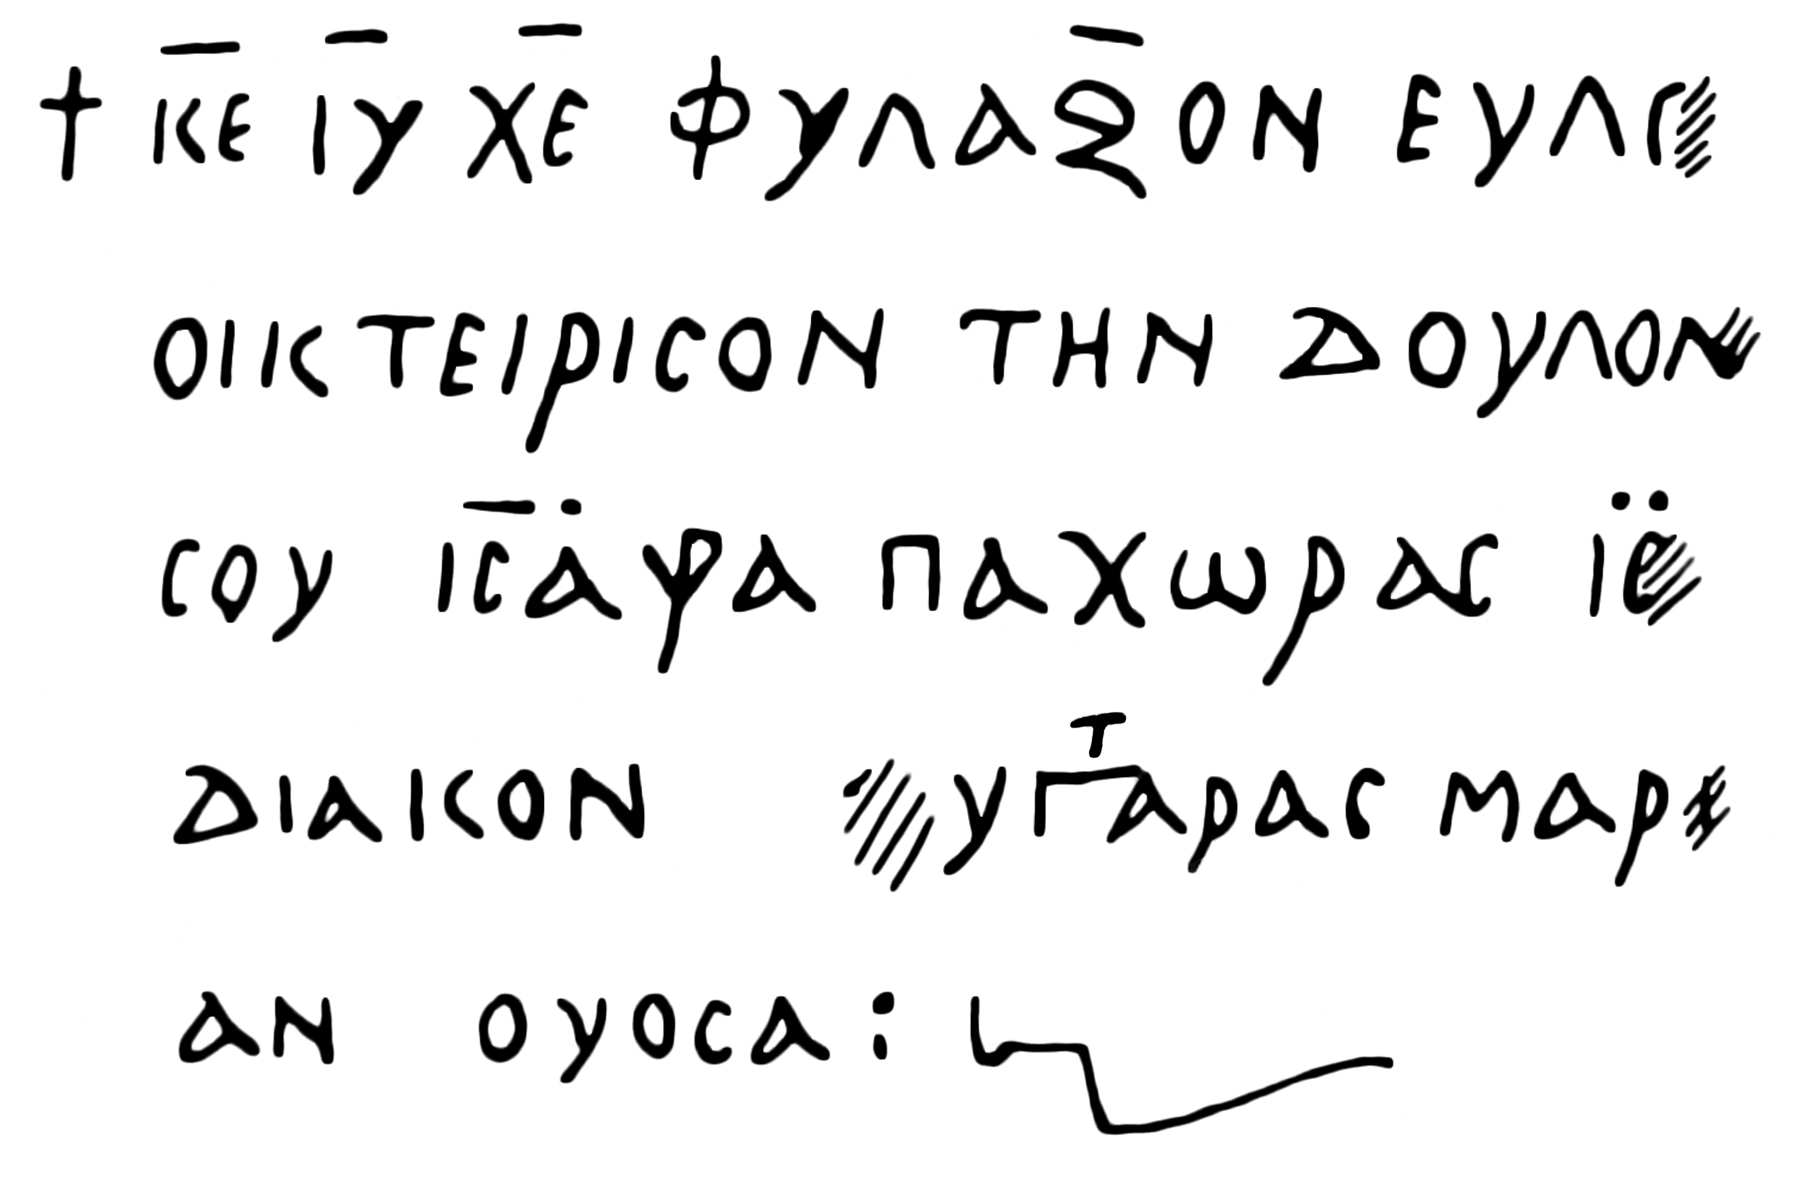 † κ̅ε̅ ι̅υ̅ χ̅ε̅ φυλαξ̅ον ευλ
οικτειρισον την δουλον
σου ι̅ς̅α̇ψα παχωρας
διακον υγ̅α̅ρας μαρ
αν ουοσα: